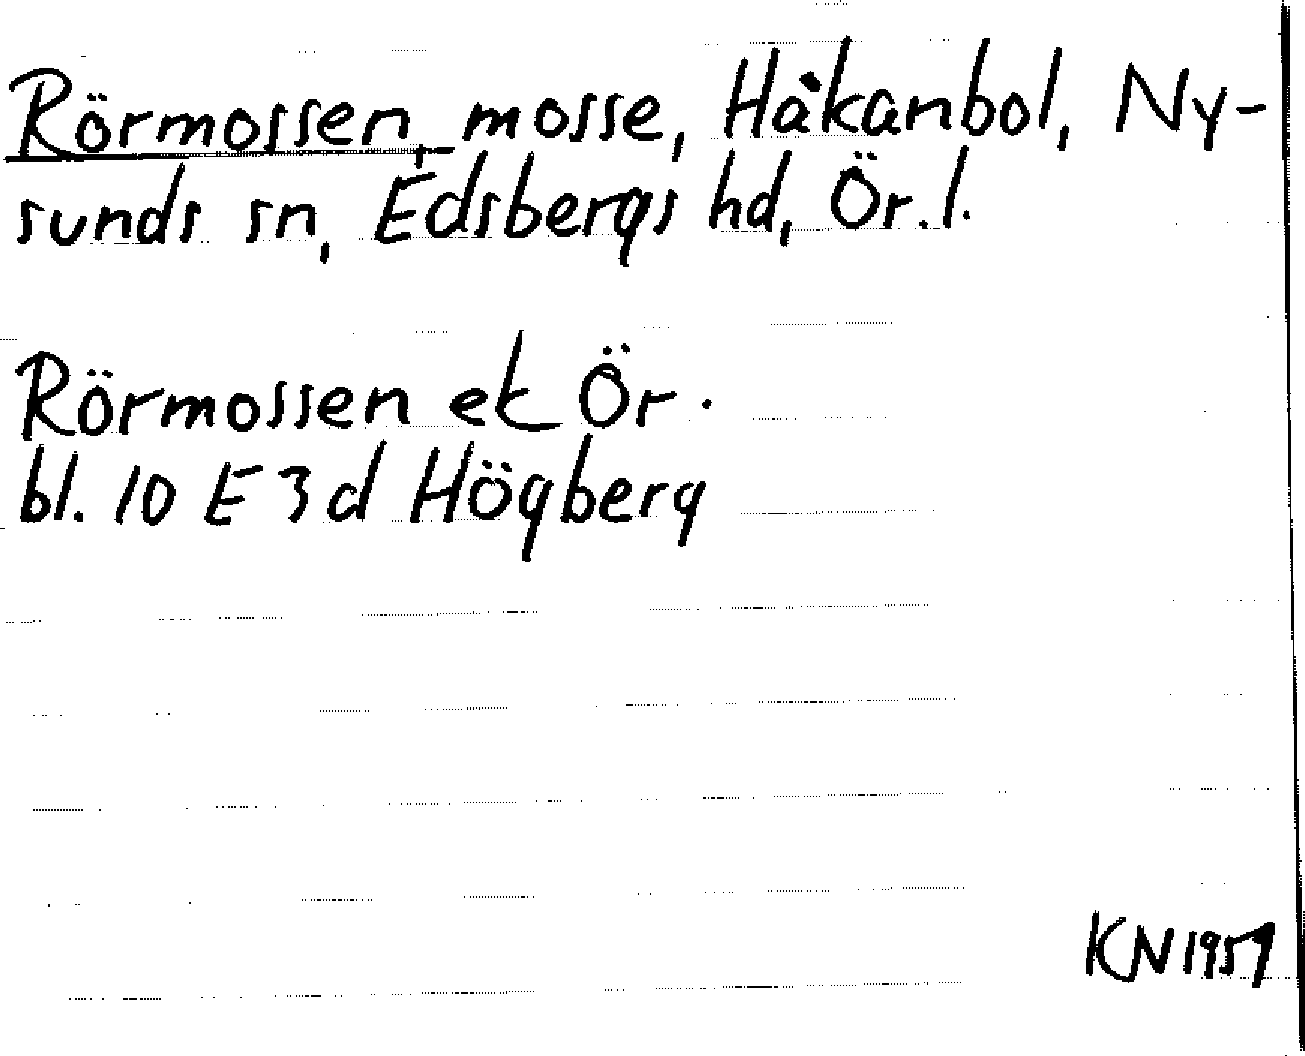 Rörmossen, mosse, Håkanbol, Ny-
sunds sn, Edsbergs hd, Ör.l.
Rörmossen ek Ör.
bl. 10 E 3d Högberg
KN 1957